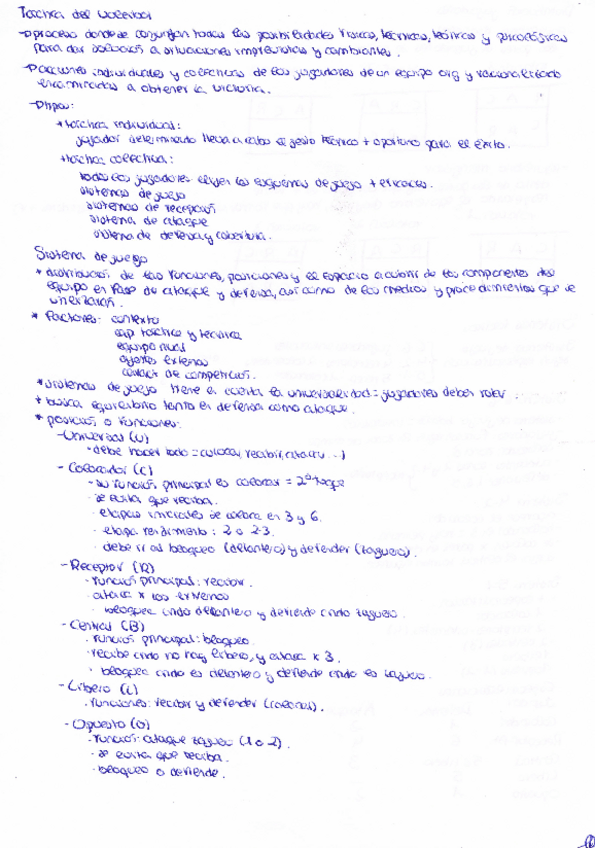 Táctica del voleibol
→ proceso donde se conjugan todas las posibilidades físicas, técnicas, teóricas y psicológicas
para dar solución a situaciones imprevistas y cambiantes.
→ acciones individuales y colectivas de los jugadores de un equipo org y racionalizado
encaminadas a obtener la victoria.
→ tipos:
* táctica individual:
jugador determinado lleva a cabo el gesto técnico + oportuno para el éxito.
* táctica colectiva:
todos los jugadores eligen los esquemas de juego + eficaces.
sistemas de juego
sistemas de recepción
sistema de ataque
sistema de defensa y cobertura.
Sistema de juego
* distribución de las funciones, posiciones y el espacio a cubrir de los componentes del
equipo en fase de ataque y defensa, así como de los medios y procedimientos que se
utilizarán.
* Factores: contexto
cap táctica y técnica
equipo rival
agentes externos
caract de competición.
* sistemas de juego tiene en cuenta la universalidad = jugadores deben rotar.
* busca equilibrio tanto en defensa como ataque.
* posición o funciones:
- Universal (U)
- debe hacer todo = colocar, recibir, atacar ...)
- Colocador (C)
- su función principal es colocar = 2º toque
- se evita que reciba.
- etapas iniciales se coloca en 3 y 6.
- etapa rendimiento: 2 o 2-3.
- debe ir al bloqueo (delantero) y defender (zaguero).
- Receptor (R)
- función principal: recibir.
- ataca x los extremos
- bloquea cndo delantero y defiende cndo zaguero.
- Central (B)
- función principal: bloqueo.
- recibe cndo no hay líbero, y ataca x 3.
- bloquea cndo es delantero y defiende cndo es zaguero.
- Líbero (L)
- funciones: recibir y defender (colocar).
- Opuesto (O)
- función: ataque zaguero (1 o 2).
- se evita que reciba.
- bloqueo o defiende.